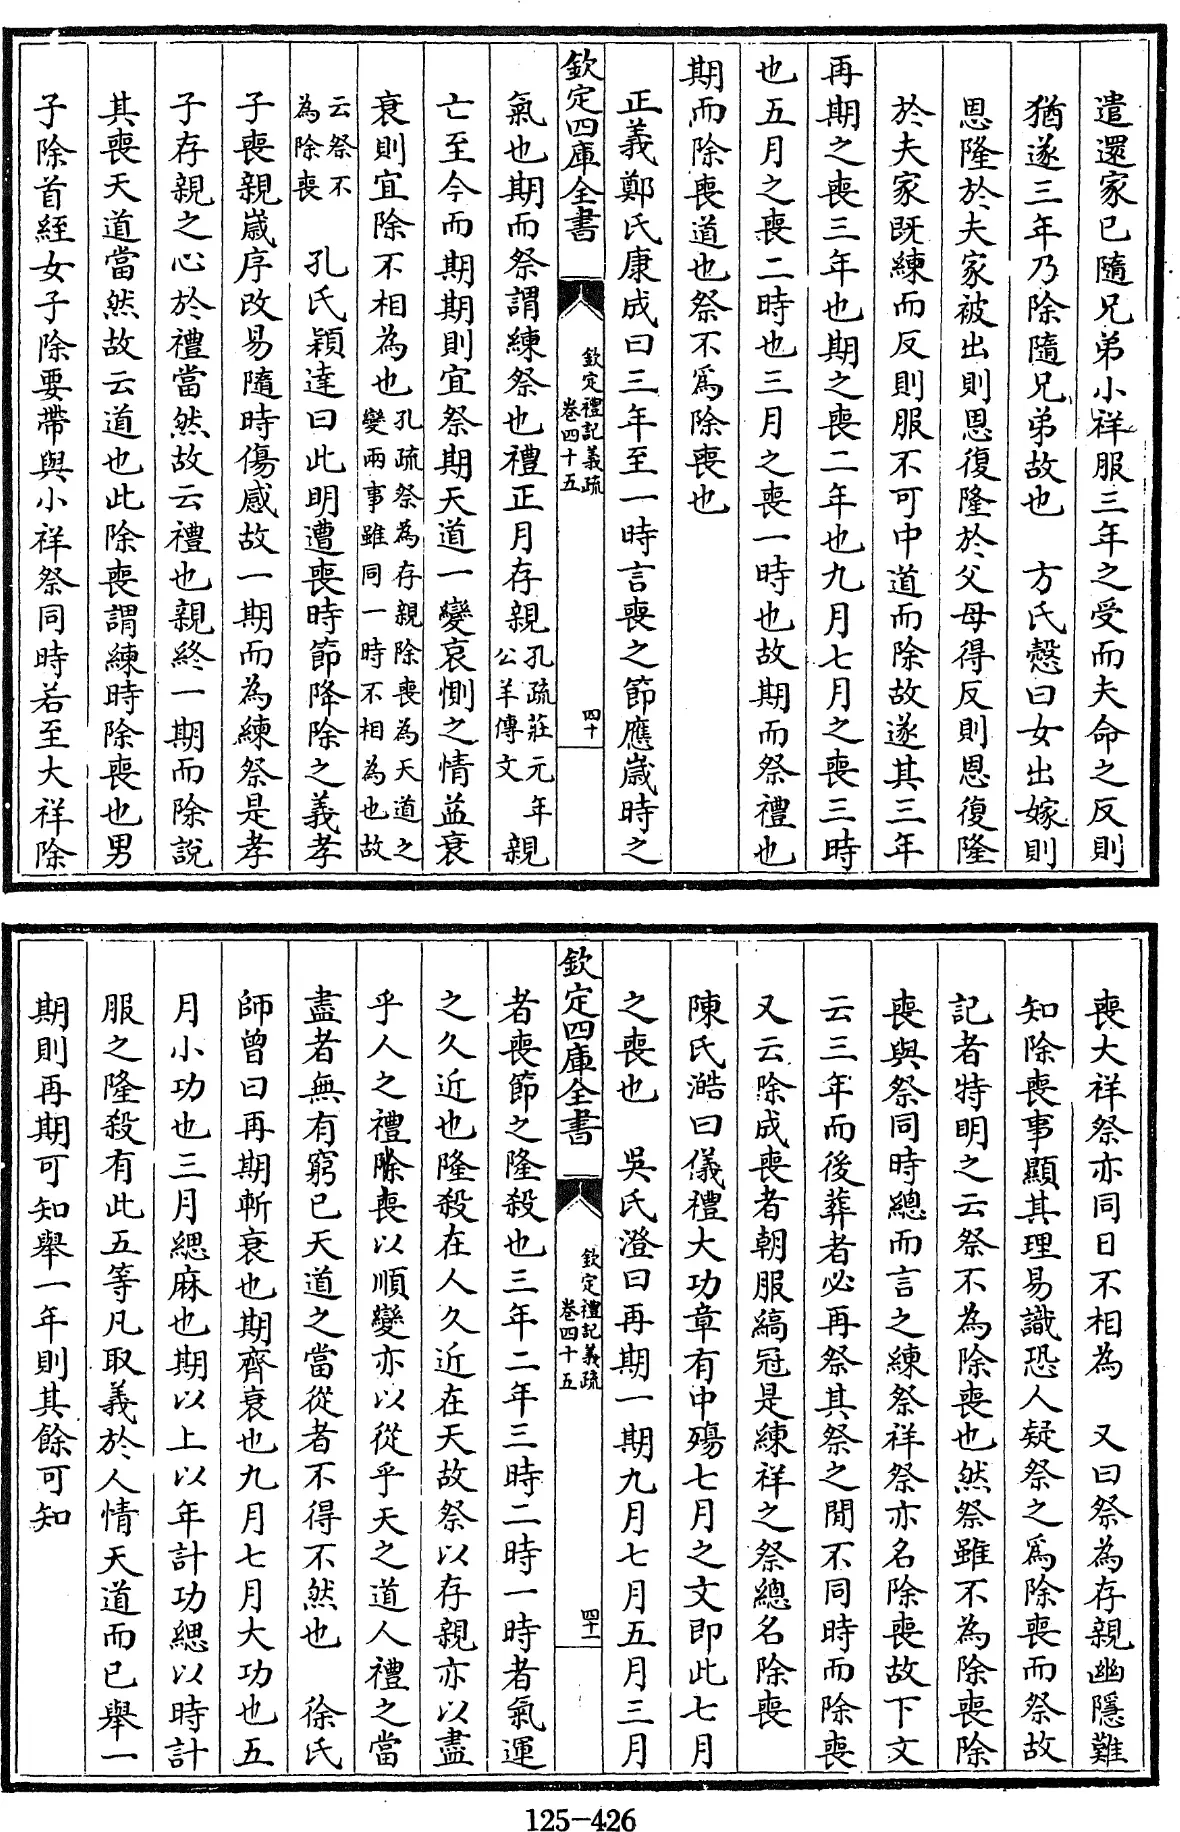 遣還家已隨兄弟小祥服三年之受而夫命之反則
猶遂三年乃除隨兄弟故也　方氏慤曰女出嫁則
恩隆於夫家被出則恩復隆於父母得反則恩復隆
於夫家既練而反則服不可中道而除故遂其三年
再期之喪三年也期之喪二年也九月七月之喪三時
也五月之喪二時也三月之喪一時也故期而祭禮也
期而除喪道也祭不爲除喪也
正義鄭氏康成曰三年至一時言喪之節應歲時之
欽定四庫全書　欽定禮記義疏　卷四十五　四十
氣也期而祭謂練祭也禮正月存親孔疏莊元年公羊傳文親
亡至今而期期則宜祭期天道一變哀惻之情益衰
衰則宜除不相為也孔疏祭為存親除喪為天道之變兩事雖同一時不相為也故
云祭不為除喪　孔氏穎達曰此明遭喪時節降除之義孝
子喪親歲序改易隨時傷感故一期而為練祭是孝
子存親之心於禮當然故云禮也親終一期而除說
其喪天道當然故云道也此除喪謂練時除喪也男
子除首絰女子除要帶與小祥祭同時若至大祥除
喪大祥祭亦同日不相為　又曰祭為存親幽隱難
知除喪事顯其理易識恐人疑祭之爲除喪而祭故
記者特明之云祭不為除喪也然祭雖不為除喪除
喪與祭同時總而言之練祭祥祭亦名除喪故下文
云三年而後葬者必再祭其祭之間不同時而除喪
又云除成喪者朝服縞冠是練祥之祭總名除喪
陳氏澔曰儀禮大功章有中殤七月之文即此七月
之喪也　吳氏澄曰再期一期九月七月五月三月
欽定四庫全書　欽定禮記義疏　卷四十五　四十一
者喪節之隆殺也三年二年三時二時一時者氣運
之久近也隆殺在人久近在天故祭以存親亦以盡
乎人之禮除喪以順變亦以從乎天之道人禮之當
盡者無有窮已天道之當從者不得不然也　徐氏
師曾曰再期斬衰也期齊衰也九月七月大功也五
月小功也三月緦麻也期以上以年計功緦以時計
服之隆殺有此五等凡取義於人情天道而已舉一
期則再期可知舉一年則其餘可知
125-426